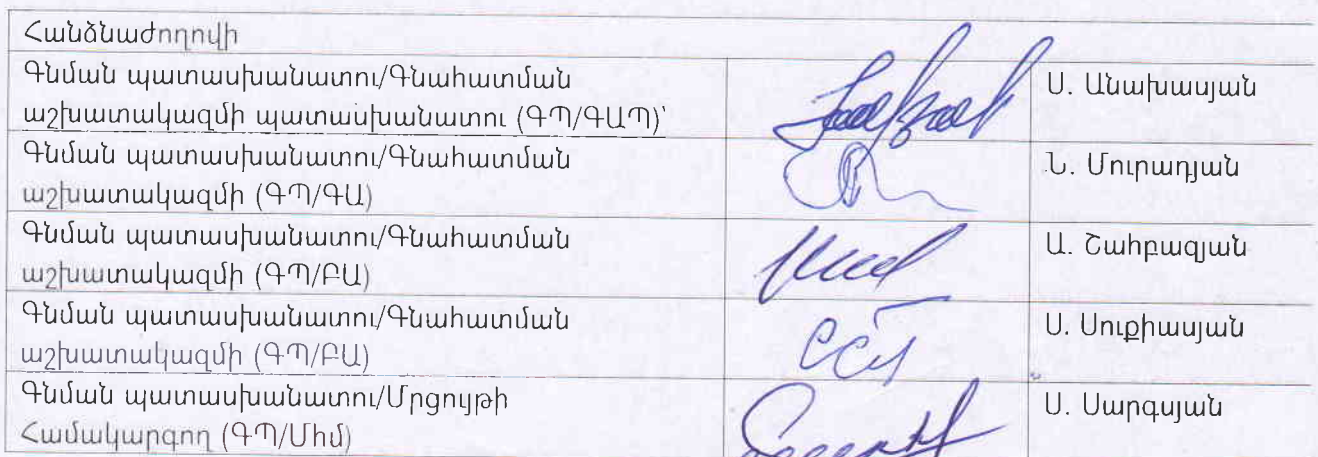 Հանձնաժողովի
Գնման պատասխանատու/Գնահատման
աշխատակազմի պատասխանատու (ԳՊ/ԳԱՊ)՝
Ս. Անախասյան
Գնման պատասխանատու/Գնահատման
աշխատակազմի (ԳՊ/ԳԱ)
Ն. Մուրադյան
Գնման պատասխանատու/Գնահատման
աշխատակազմի (ԳՊ/ԲԱ)
Ա. Շահբազյան
Գնման պատասխանատու/Գնահատման
աշխատակազմի (ԳՊ/ԲԱ)
Ս. Սուքիասյան
Գնման պատասխանատու/Մրցույթի
Համակարգող (ԳՊ/Միմ)
Ս. Սարգսյան